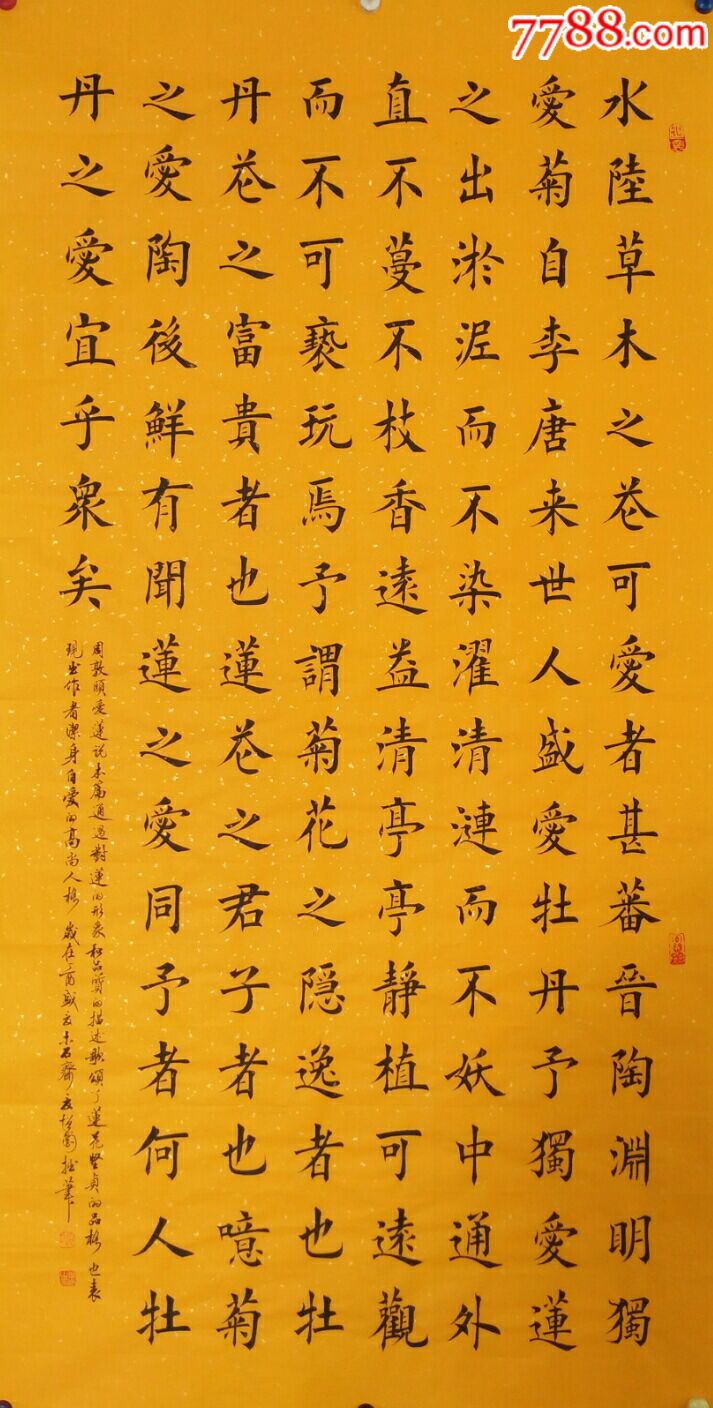 7788.com
水陸草木之花可愛者甚蕃晉陶淵明獨
愛菊自李唐来世人盛愛牡丹予獨愛蓮
之出淤泥而不染濯清漣而不妖中通外
直不蔓不枝香遠益清亭亭靜植可遠觀
而不可褻玩焉予謂菊花之隐逸者也牡
丹花之富貴者也蓮花之君子者也噫菊
之愛陶後鮮有聞蓮之愛同予者何人牡
丹之愛宜乎衆矣
周敦頤愛蓮説本篇通過對蓮的形象和品質的描述歌頌了蓮花堅貞的品格也表
現出作者潔身自愛的高尚人格 歲在丁酉盛夏 石齋 拙筆